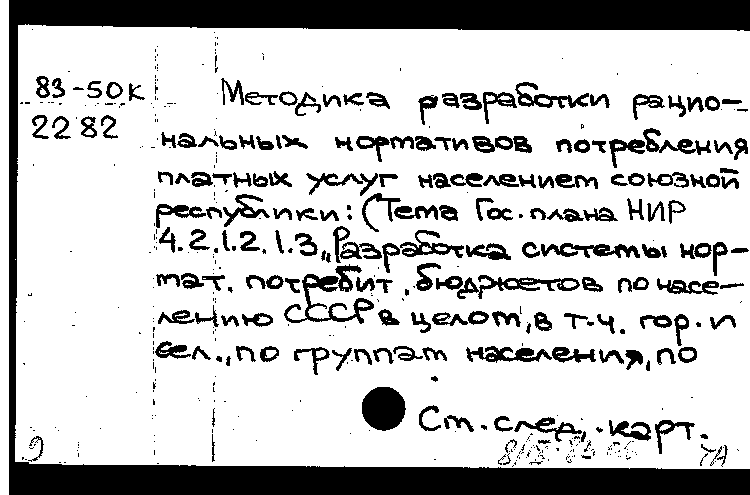 83-50К Методика разработки рацио-
2282 нальных нормативов потребления
платных услуг населением союзной
республики: (Тема Гос. плана НИР
4.2.1.2.1.3 „Разработка системы нор-
мат. потребит. бюджетов по насе-
лению СССР в целом, в т.ч. гор. и
сел., по группам населения, по
См. след. карт.
9